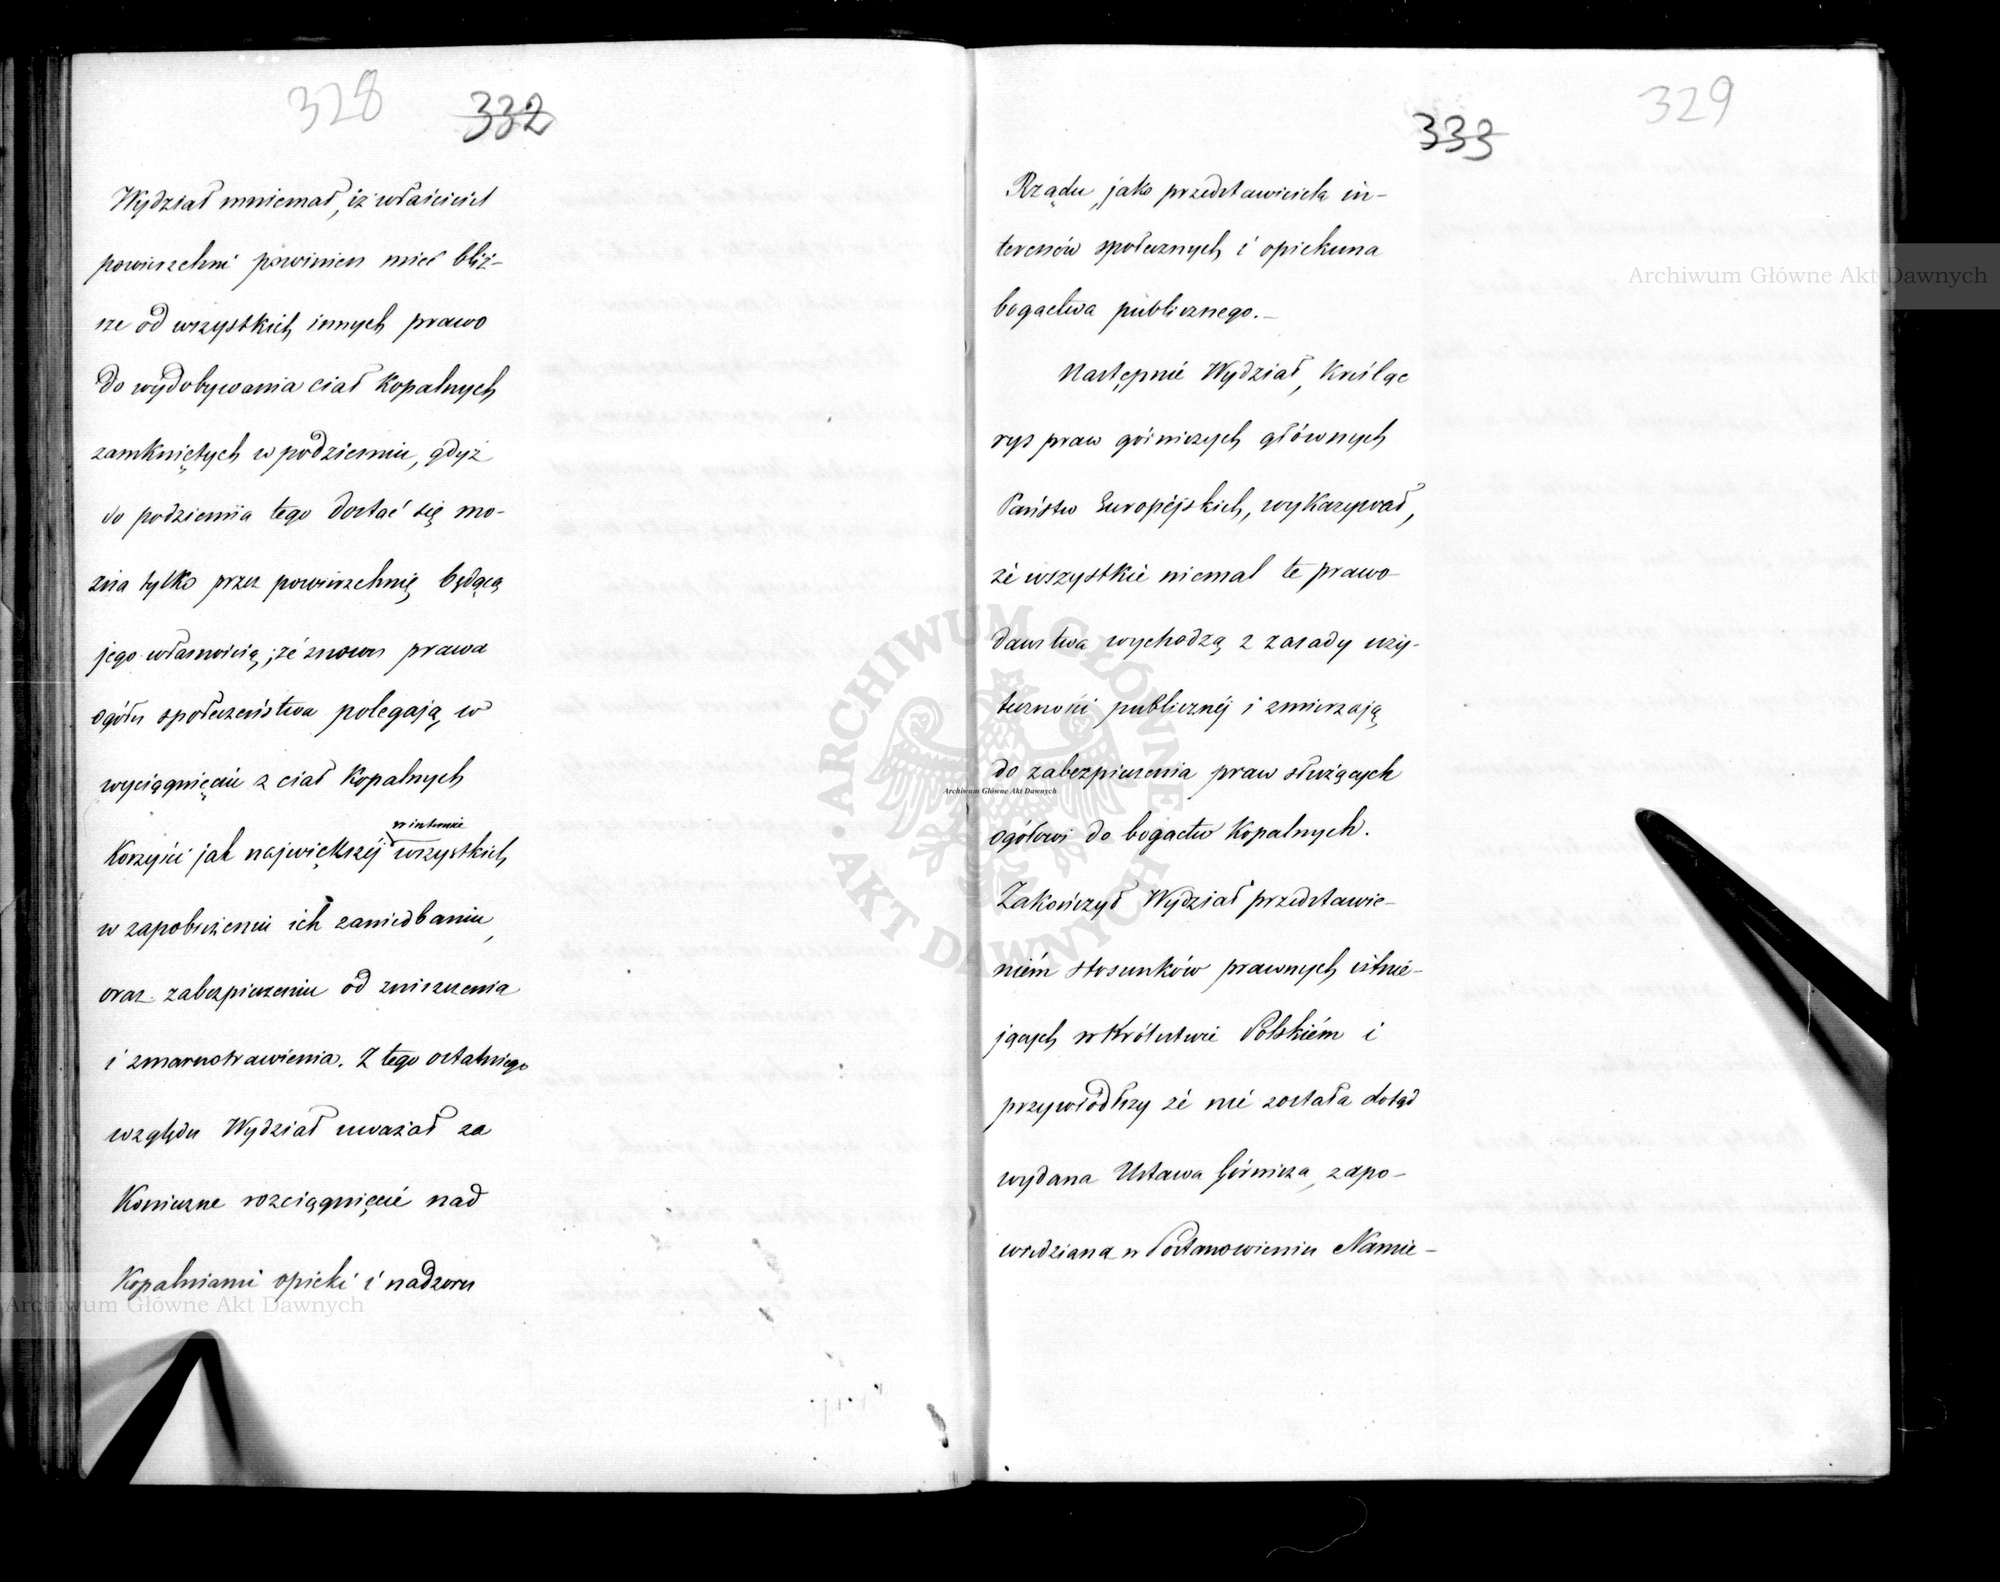 328
332
Wydział mniemał, iż właściciel
powierzchni powinien mieć bliż-
sze od wszystkich innych prawo
do wydobywania ciał kopalnych
zamkniętych w podziemiu, gdyż
do podziemia tego dostać się mo-
żna tylko przez powierzchnię będącą
jego własnością; że znowu prawa
ogółu społeczeństwa polegają w
wyciągnięciu z ciał kopalnych
w interesie
korzyści jak największéj wszystkich
w zapobieżeniu ich zaniedbaniu,
oraz zabezpieczeniu od zniszczenia
i zmarnotrawienia. Z tego ostatniego
względu Wydział uważał za
konieczne rozciągnięcie nad
kopalniami opieki i nadzoru
329
333
Rządu, jako przedstawiciela in-
teressów społecznych i opiekuna
bogactwa publicznego.–
Następnie Wydział, kréśląc
rys praw górniczych głównych
Państw Européjskich, wykazywał,
że wszystkie niemal te prawo-
dawstwa wychodzą z zasady uży-
teczności publicznéj i zmierzają
do zabezpieczenia praw służących
ogółowi do bogactw kopalnych.
Zakończył Wydział przedstawie-
niém stosunków prawnych istnie-
jących w Królestwie Polskiém i
przywiódłszy że nie została dotąd
wydana Ustawa Górnicza, zapo-
wiedziana w Postanowieniu Namie-
Archiwum Główne Akt Dawnych
ARCHIWUM GŁÓWNE AKT DAWNYCH
Archiwum Główne Akt Dawnych
Archiwum Główne Akt Dawnych